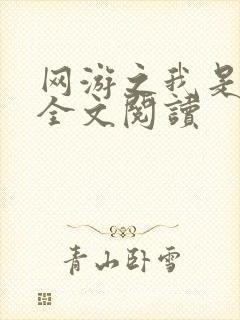 网游之我是
全文閱讀
青山卧雪